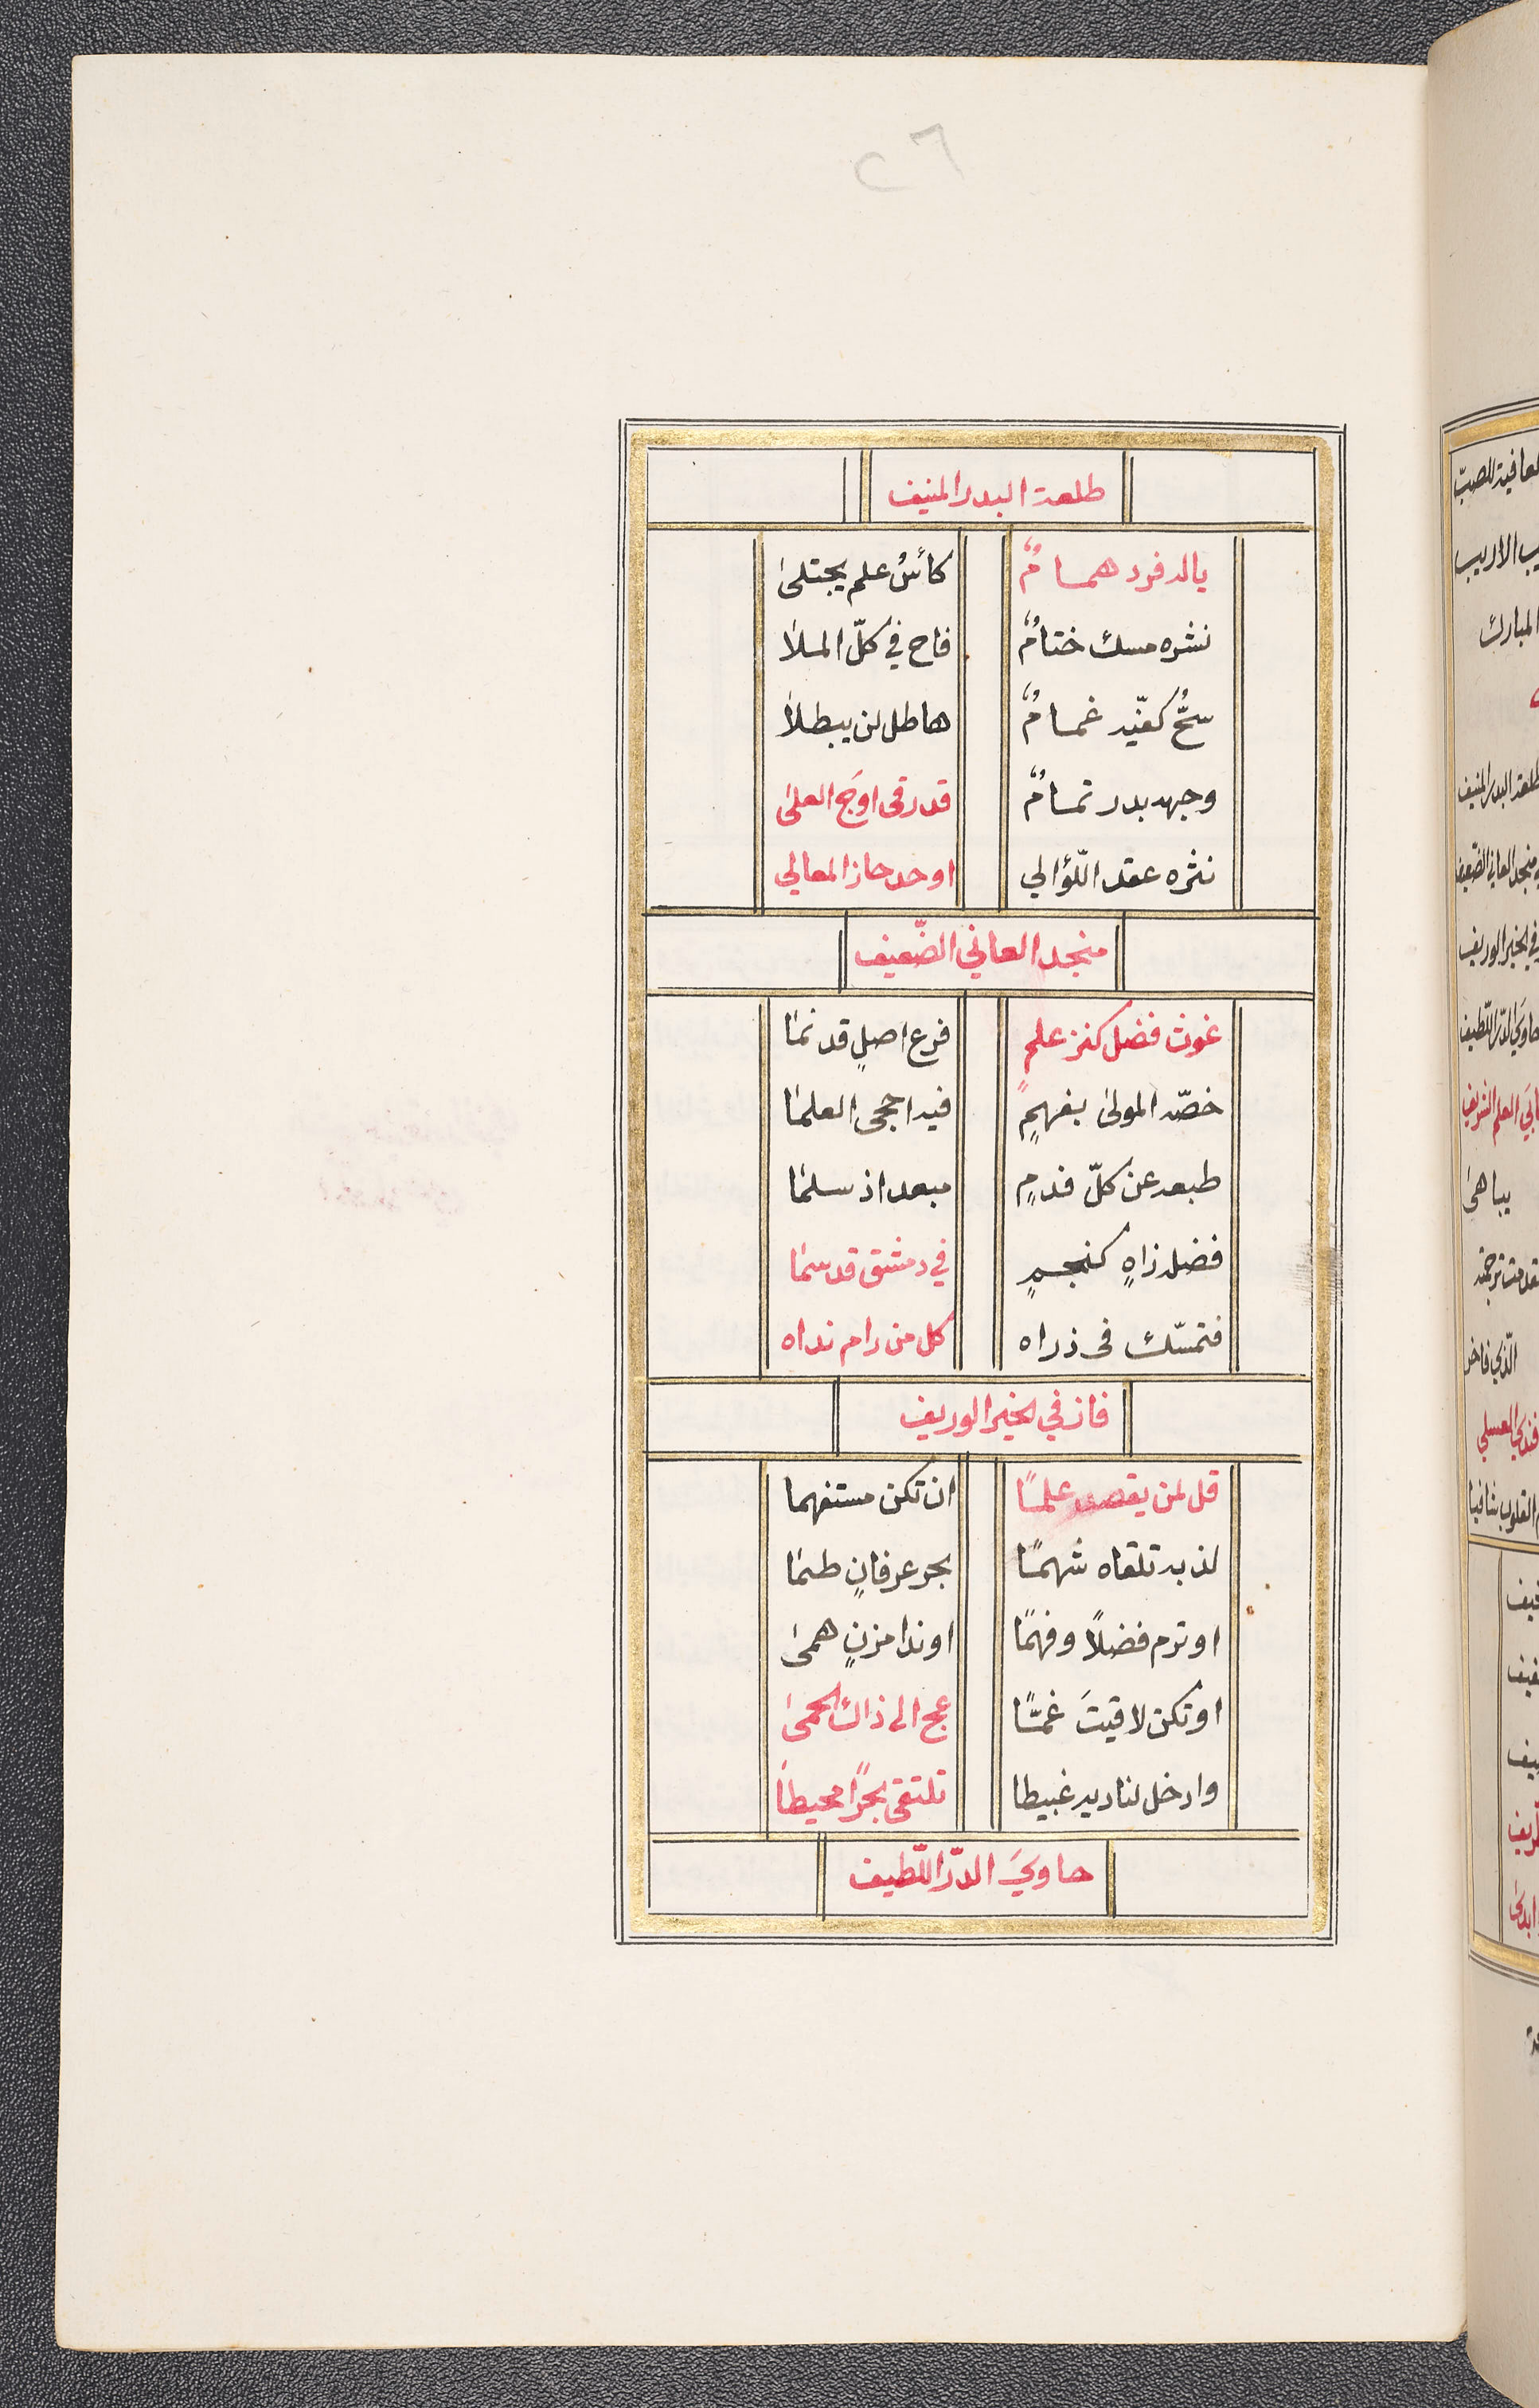 ٢٦
طلعة البدر المنيف
ياله فرد همامٌ كأسُ علم يجتلىٰ
نشره مسك ختامٌ فاح في كلّ الملا
سحُّ كفّيه غمامٌ هاطل لن يبطلا
وجهه بدر تمامٌ قد رقى اوَج العلىٰ
نثره عقد اللّؤالي اوحد حاز المعالي
منجد العاني الضّعيف
غوث فضل كنز علمٍ فرع اصلٍ قد نما
خصّه المولىٰ بفهمٍ فيه احجى العلما
طبعه عن كلّ فدمٍ مبعد اذ سلما
فضله زاهٍ كنجمٍ في دمشق قد سما
فتمسّك فى ذراه كل من رام نداه
فاز في الخير الوريف
قل لمن يقصد علمًا ان تكن مستفهما
لذ به تلقاه شهمًا بحر عرفانٍ طما
او ترم فضلاً وفهمًا او ندا مزنٍ همىٰ
او تكن لاقيتَ غمًّا عج الى ذاك الحمىٰ
وادخل لناديه غبيطا تلتقى بحرًا محيطاً
حاويَ الدّر اللّطيف